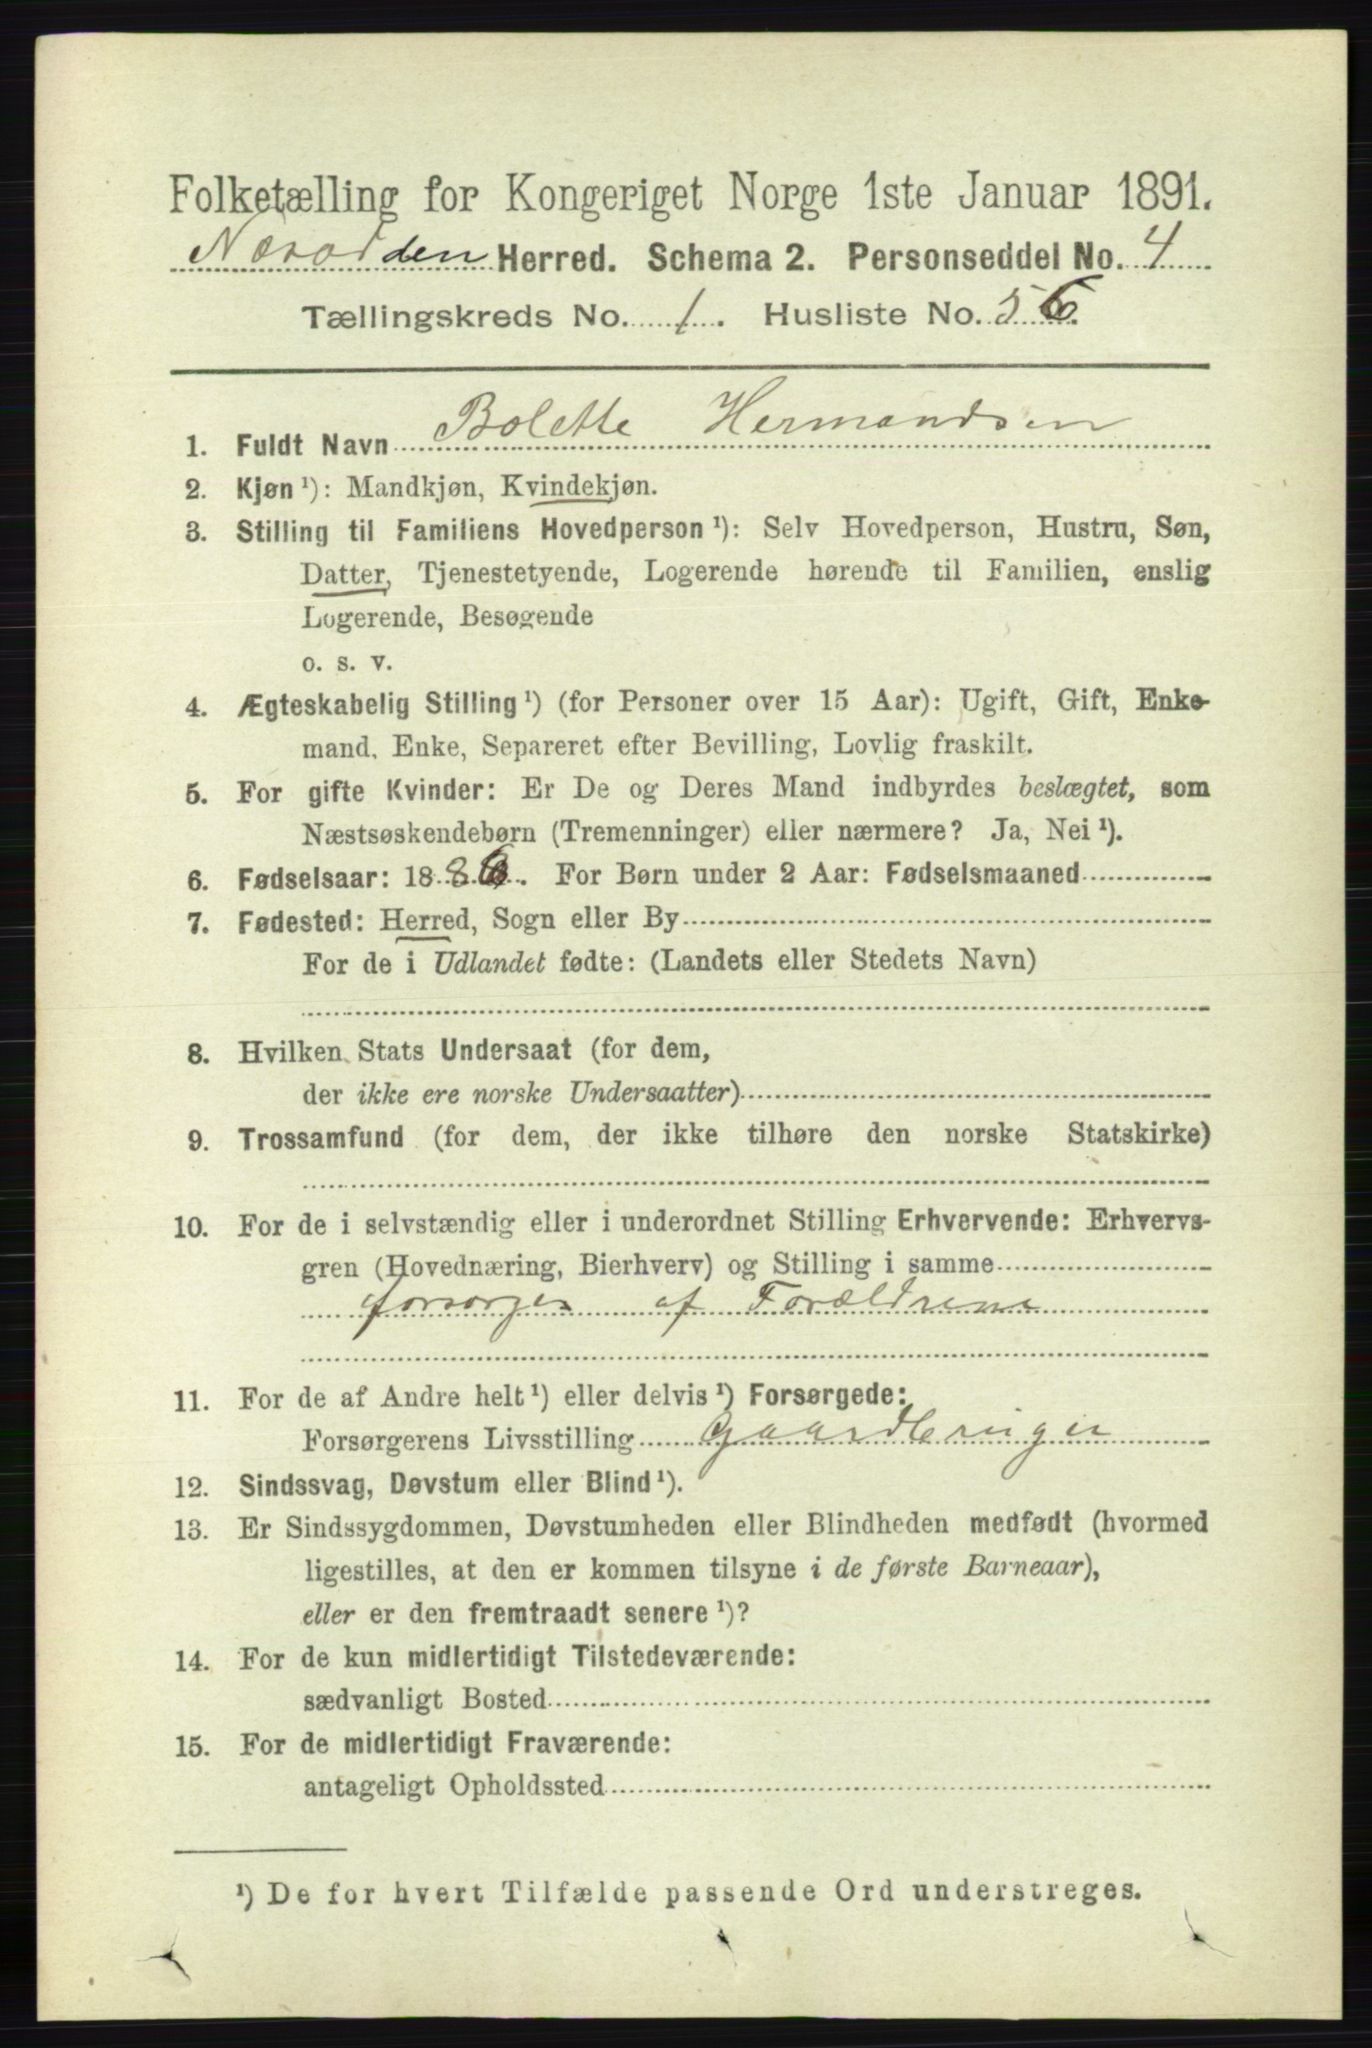 Folketælling for Kongeriget Norge 1ste Januar 1891.
Herred. Schema 2. Personseddel No. 4
Tællingskreds No. 1. Husliste No. 56.
1. Fuldt Navn Bolette Hermandsen
2. Kjøn ¹): Mandkjøn, Kvindekjøn.
3. Stilling til Familiens Hovedperson ¹): Selv Hovedperson, Hustru, Søn,
Datter, Tjenestetyende, Logerende hørende til Familien, enslig
Logerende, Besøgende
o. s. v.
4. Ægteskabelig Stilling ¹) (for Personer over 15 Aar): Ugift, Gift, Enke-
mand, Enke, Separeret efter Bevilling, Lovlig fraskilt.
5. For gifte Kvinder: Er De og Deres Mand indbyrdes beslægtet, som
Næstsøskendebørn (Tremenninger) eller nærmere? Ja, Nei ¹).
6. Fødselsaar: 1886. For Børn under 2 Aar: Fødselsmaaned
7. Fødested: Herred, Sogn eller By
For de i Udlandet fødte: (Landets eller Stedets Navn)
8. Hvilken Stats Undersaat (for dem,
der ikke ere norske Undersaatter)
9. Trossamfund (for dem, der ikke tilhøre den norske Statskirke)
10. For de i selvstændig eller i underordnet Stilling Erhvervende: Erhvervs-
gren (Hovednæring, Bierhverv) og Stilling i samme
forsørges af Forældrene
11. For de af Andre helt ¹) eller delvis ¹) Forsørgede:
Forsørgerens Livsstilling Gaardbruger
12. Sindssvag, Døvstum eller Blind ¹).
13. Er Sindssygdommen, Døvstumheden eller Blindheden medfødt (hvormed
ligestilles, at den er kommen tilsyne i de første Barneaar),
eller er den fremtraadt senere ¹)?
14. For de kun midlertidigt Tilstedeværende:
sædvanligt Bosted
15. For de midlertidigt Fraværende:
antageligt Opholdssted
¹) De for hvert Tilfælde passende Ord understreges.